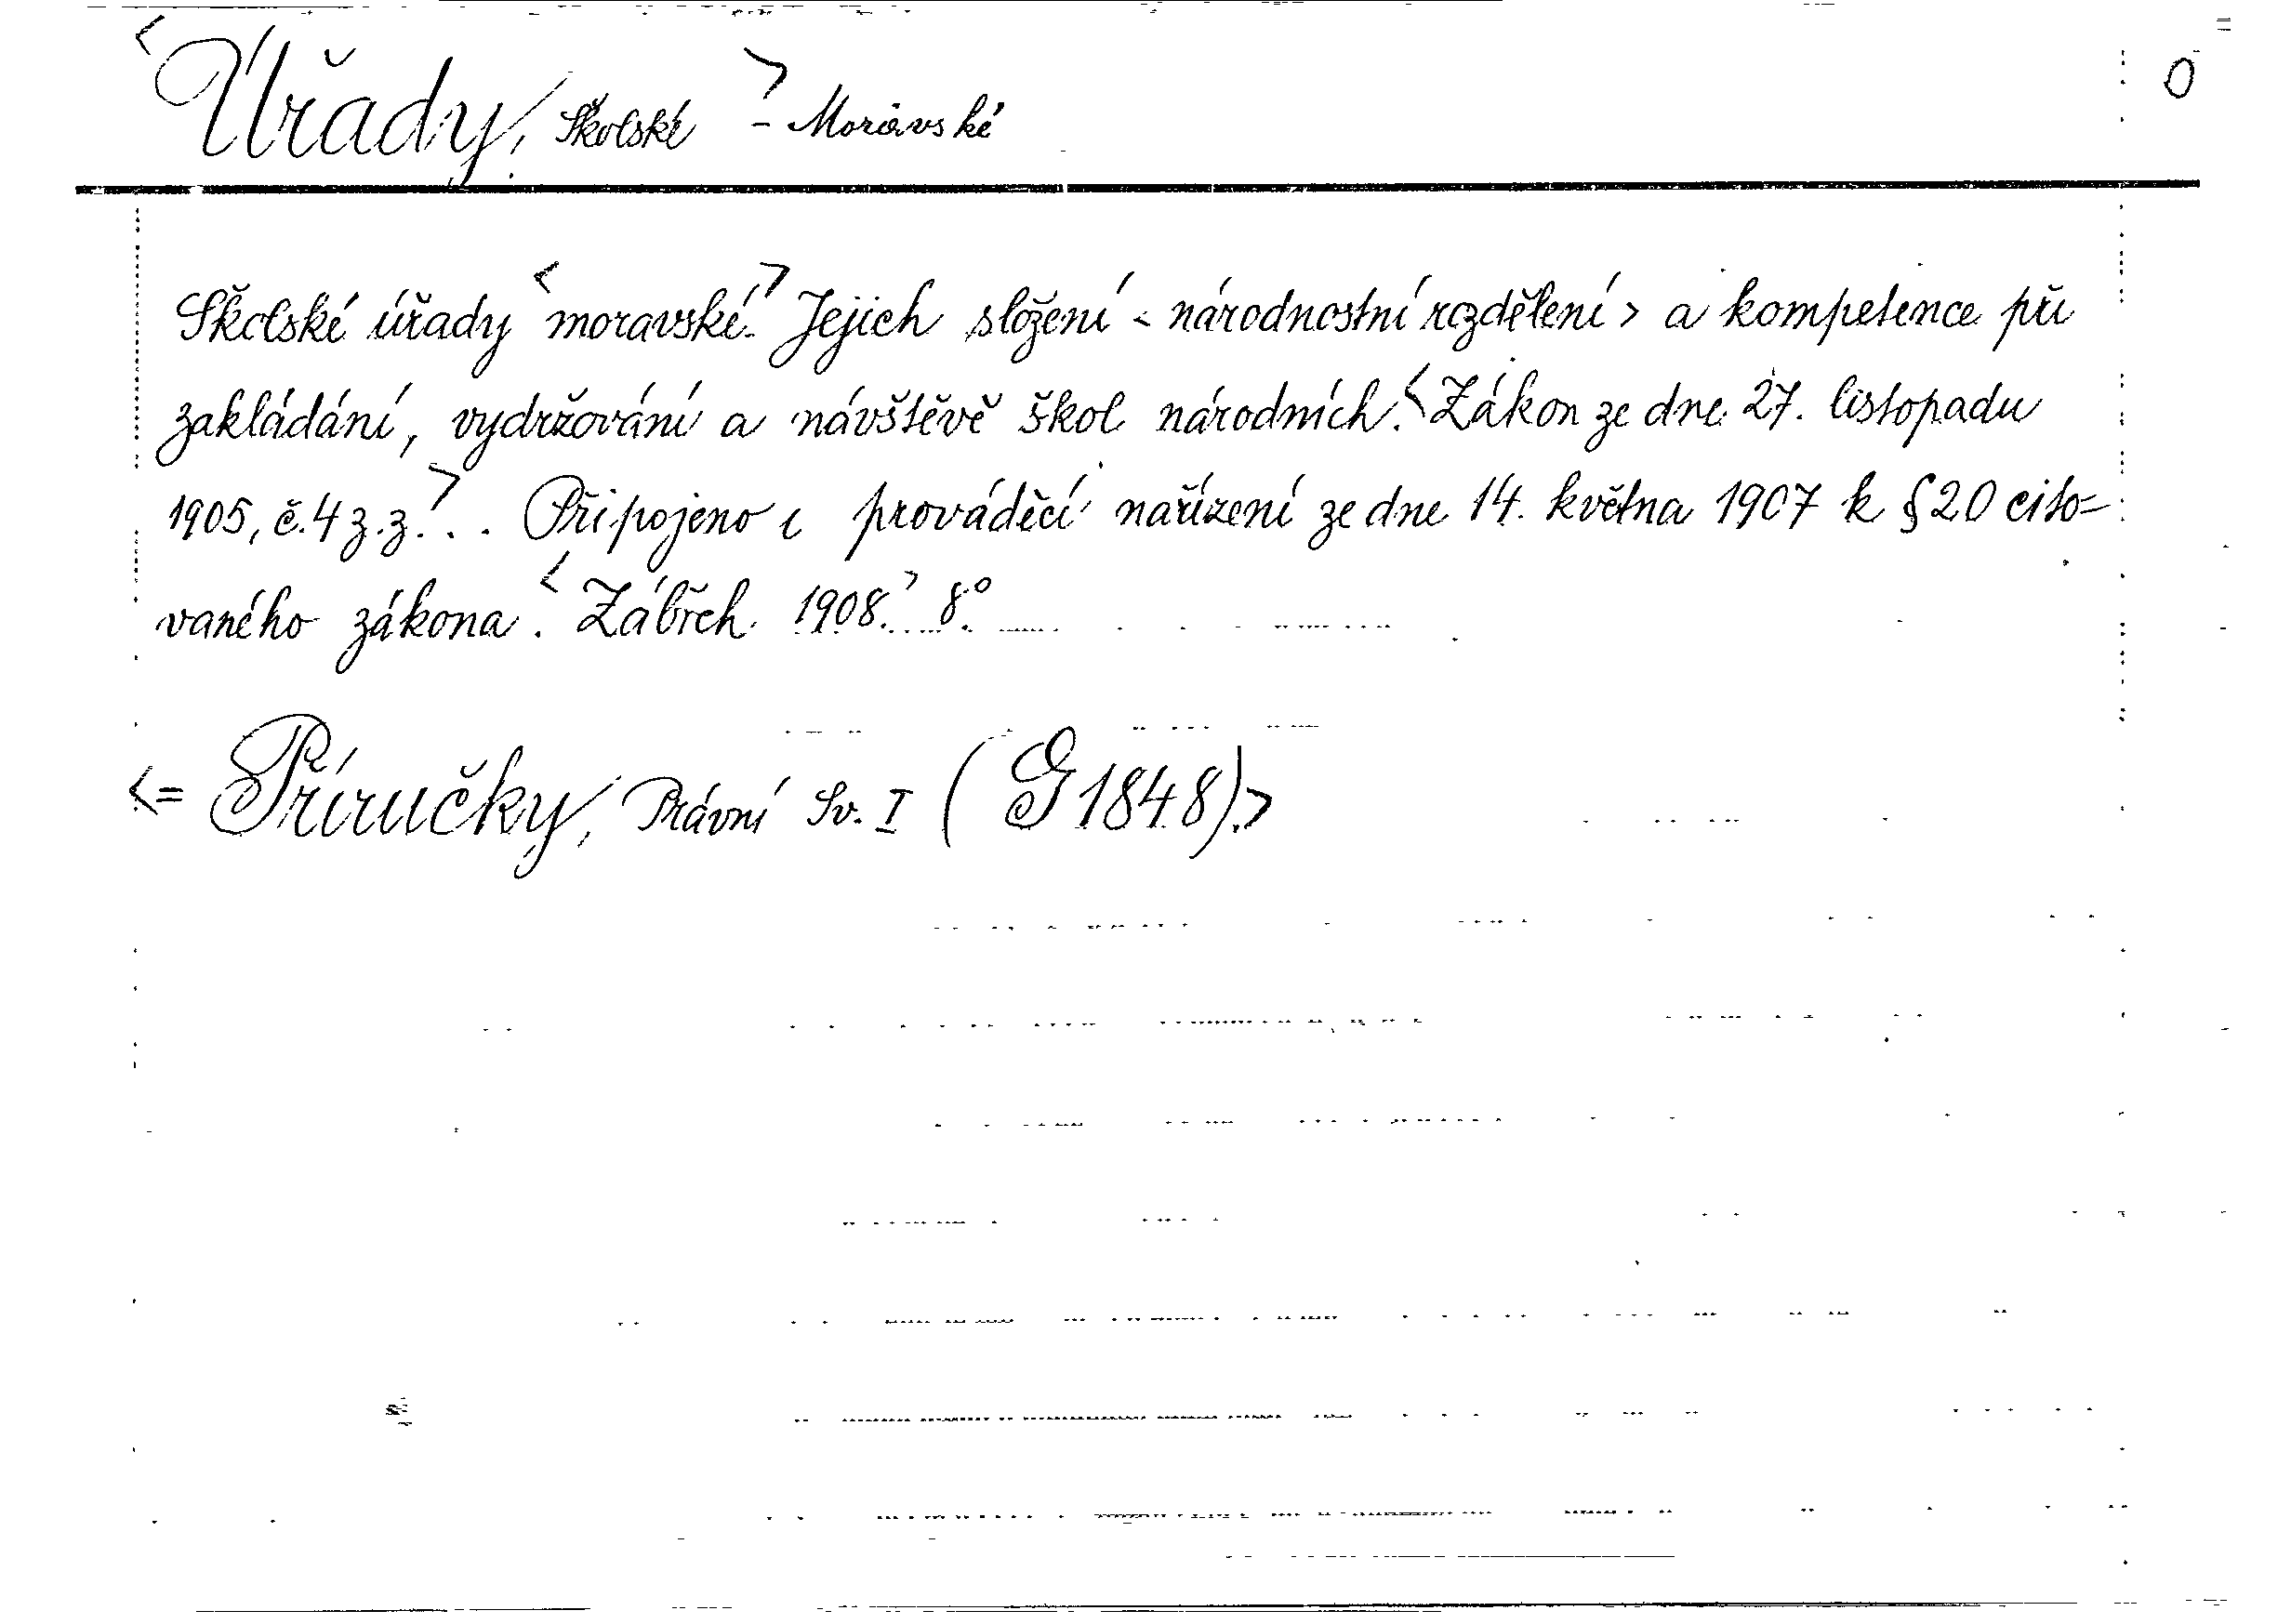 <Úřady, Školské> - Moravské
0
Školské úřady <moravské.> Jejich složení <národnostní rozdělení> a kompetence při
zakládání, vydržování a návštěvě škol národních. <Zákon ze dne 27. listopadu
1905, č. 4 z.z.>.. Připojeno i prováděcí nařízení ze dne 14. května 1907 k § 20 cito=
vaného zákona. <Zábřeh 1908.> 8°.
<= Příručky, Právní Sv. I (G 1848).>